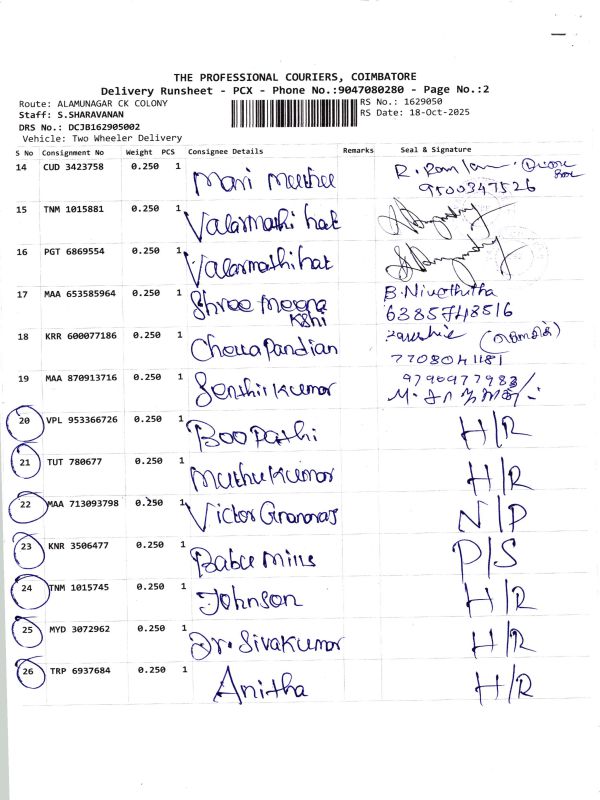 THE PROFESSIONAL COURIERS, COIMBATORE
Delivery Runsheet - PCX - Phone No.:9047080280 - Page No.:2
Route: ALAMUNAGAR CK COLONY RS No.: 1629050
Staff: S.SHARAVANAN RS Date: 18-Oct-2025
DRS No.: DCJB162905002
Vehicle: Two Wheeler Delivery
S No Consignment No Weight PCS Consignee Details Remarks Seal & Signature
14 CUD 3423758 0.250 1 Mari Muthu R. Ram
9500347526
15 TNM 1015881 0.250 1 Valarmathi hat
16 PGT 6869554 0.250 1 Valarmathi hat
17 MAA 653585964 0.250 1 Shree Meena B. Nivethitha
kshi 6385748516
18 KRR 600077186 0.250 1 Chowapandian
7708041181
19 MAA 870913716 0.250 1 Senthil Kumar 9790977983
20 VPL 953366726 0.250 1 Boopathi H/R
21 TUT 780677 0.250 1 Muthu Kumar H/R
22 MAA 713093798 0.250 1 Victor Gnanaraj N/P
23 KNR 3506477 0.250 1 Babu Mills P/S
24 TNM 1015745 0.250 1 Johnson H/R
25 MYD 3072962 0.250 1 Dr. Sivakumar H/R
26 TRP 6937684 0.250 1 Anitha H/R